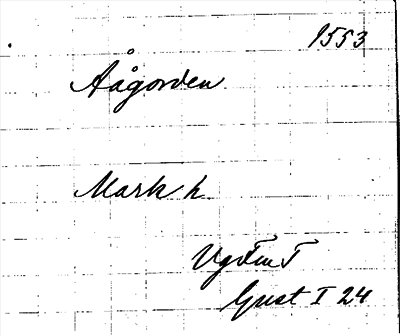 1553
Aågorden
Mark h
Gust I 24